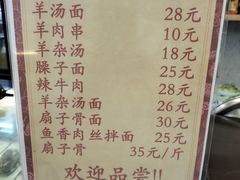 羊汤面 28元
羊肉串 10元
羊杂汤 18元
臊子面 25元
辣牛肉 28元
羊杂汤面 26元
扇子骨面 30元
鱼香肉丝拌面 25元
扇子骨 35元/斤
欢迎品尝!!